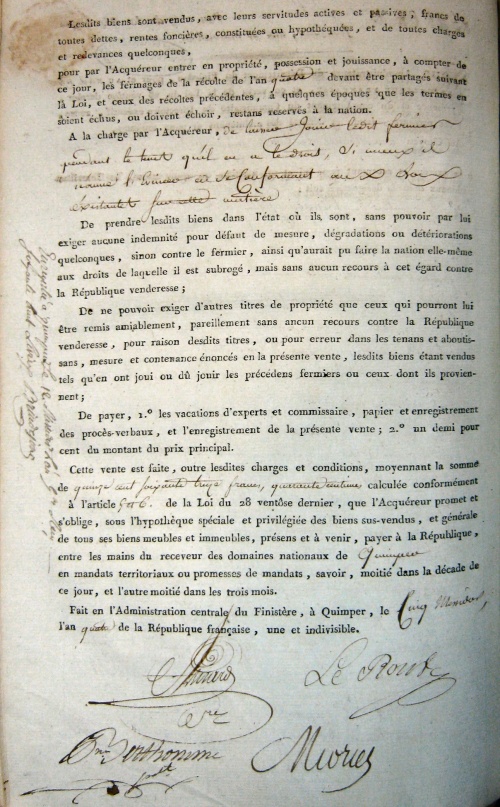 Lesdits biens sont vendus, avec leurs servitudes actives et passives ; francs de
toutes dettes, rentes foncières, constituées ou hypothéquées, et de toutes charges
et redevances quelconques,
pour par l'Acquéreur entrer en propriété, possession et jouissance, à compter de
ce jour, les fermages de la récolte de l'an quatre devant être partagés suivant
la Loi, et ceux des récoltes précédentes, à quelques époques que les termes en
soient échus, ou doivent échoir, restans reservés à la nation.
A la charge par l'Acquéreur, de laisser Jouir ledit fermier
pendant le tems qu'il en a le droit, Si mieux il
n'aime l'Evincer en se Conformant aux Loix
existantes sur cette matière
De prendre lesdits biens dans l'état où ils sont, sans pouvoir par lui
exiger aucune indemnité pour défaut de mesure, dégradations ou détériorations
quelconques, sinon contre le fermier, ainsi qu'aurait pu faire la nation elle-même
aux droits de laquelle il est subrogé, mais sans aucun recours à cet égard contre
la République venderesse ;
De ne pouvoir exiger d'autres titres de propriété que ceux qui pourront lui
être remis amiablement, pareillement sans aucun recours contre la République
venderesse, pour raison desdits titres, ou pour erreur dans les tenans et aboutis-
sans, mesure et contenance énoncés en la présente vente, lesdits biens étant vendus
tels qu'en ont joui ou dû jouir les précédens fermiers ou ceux dont ils provien-
nent ;
De payer, 1.° les vacations d'experts et commissaire, papier et enregistrement
des procès-verbaux, et l'enregistrement de la présente vente ; 2.° un demi pour
cent du montant du prix principal.
Cette vente est faite, outre lesdites charges et conditions, moyennant la somme
de quinze cent soixante treize francs, quarante centimes calculée conformément
à l'article 5 et 6. de la Loi du 28 ventôse dernier, que l'Acquéreur promet et
s'oblige, sous l'hypothèque spéciale et privilégiée des biens sus-vendus, et générale
de tous ses biens meubles et immeubles, présens et à venir, payer à la République,
entre les mains du receveur des domaines nationaux de Quimper
en mandats territoriaux ou promesses de mandats, savoir, moitié dans la décade de
ce jour, et l'autre moitié dans les trois mois.
Fait en l'Administration centrale du Finistère, à Quimper, le Cinq Messidor,
l'an quatre de la République française, une et indivisible.
Le Routz
Berthomme